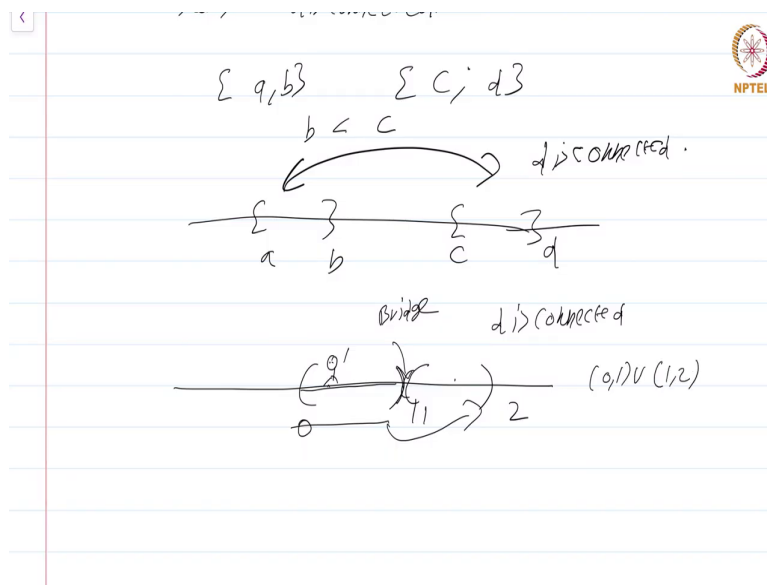 NPTEL
{ a, b} { C, d}
b < c
disconnected.
{ } { }
a b c d
Bridge disconnected
( ) ( ) (0,1) ∪ (1,2)
0 1 2